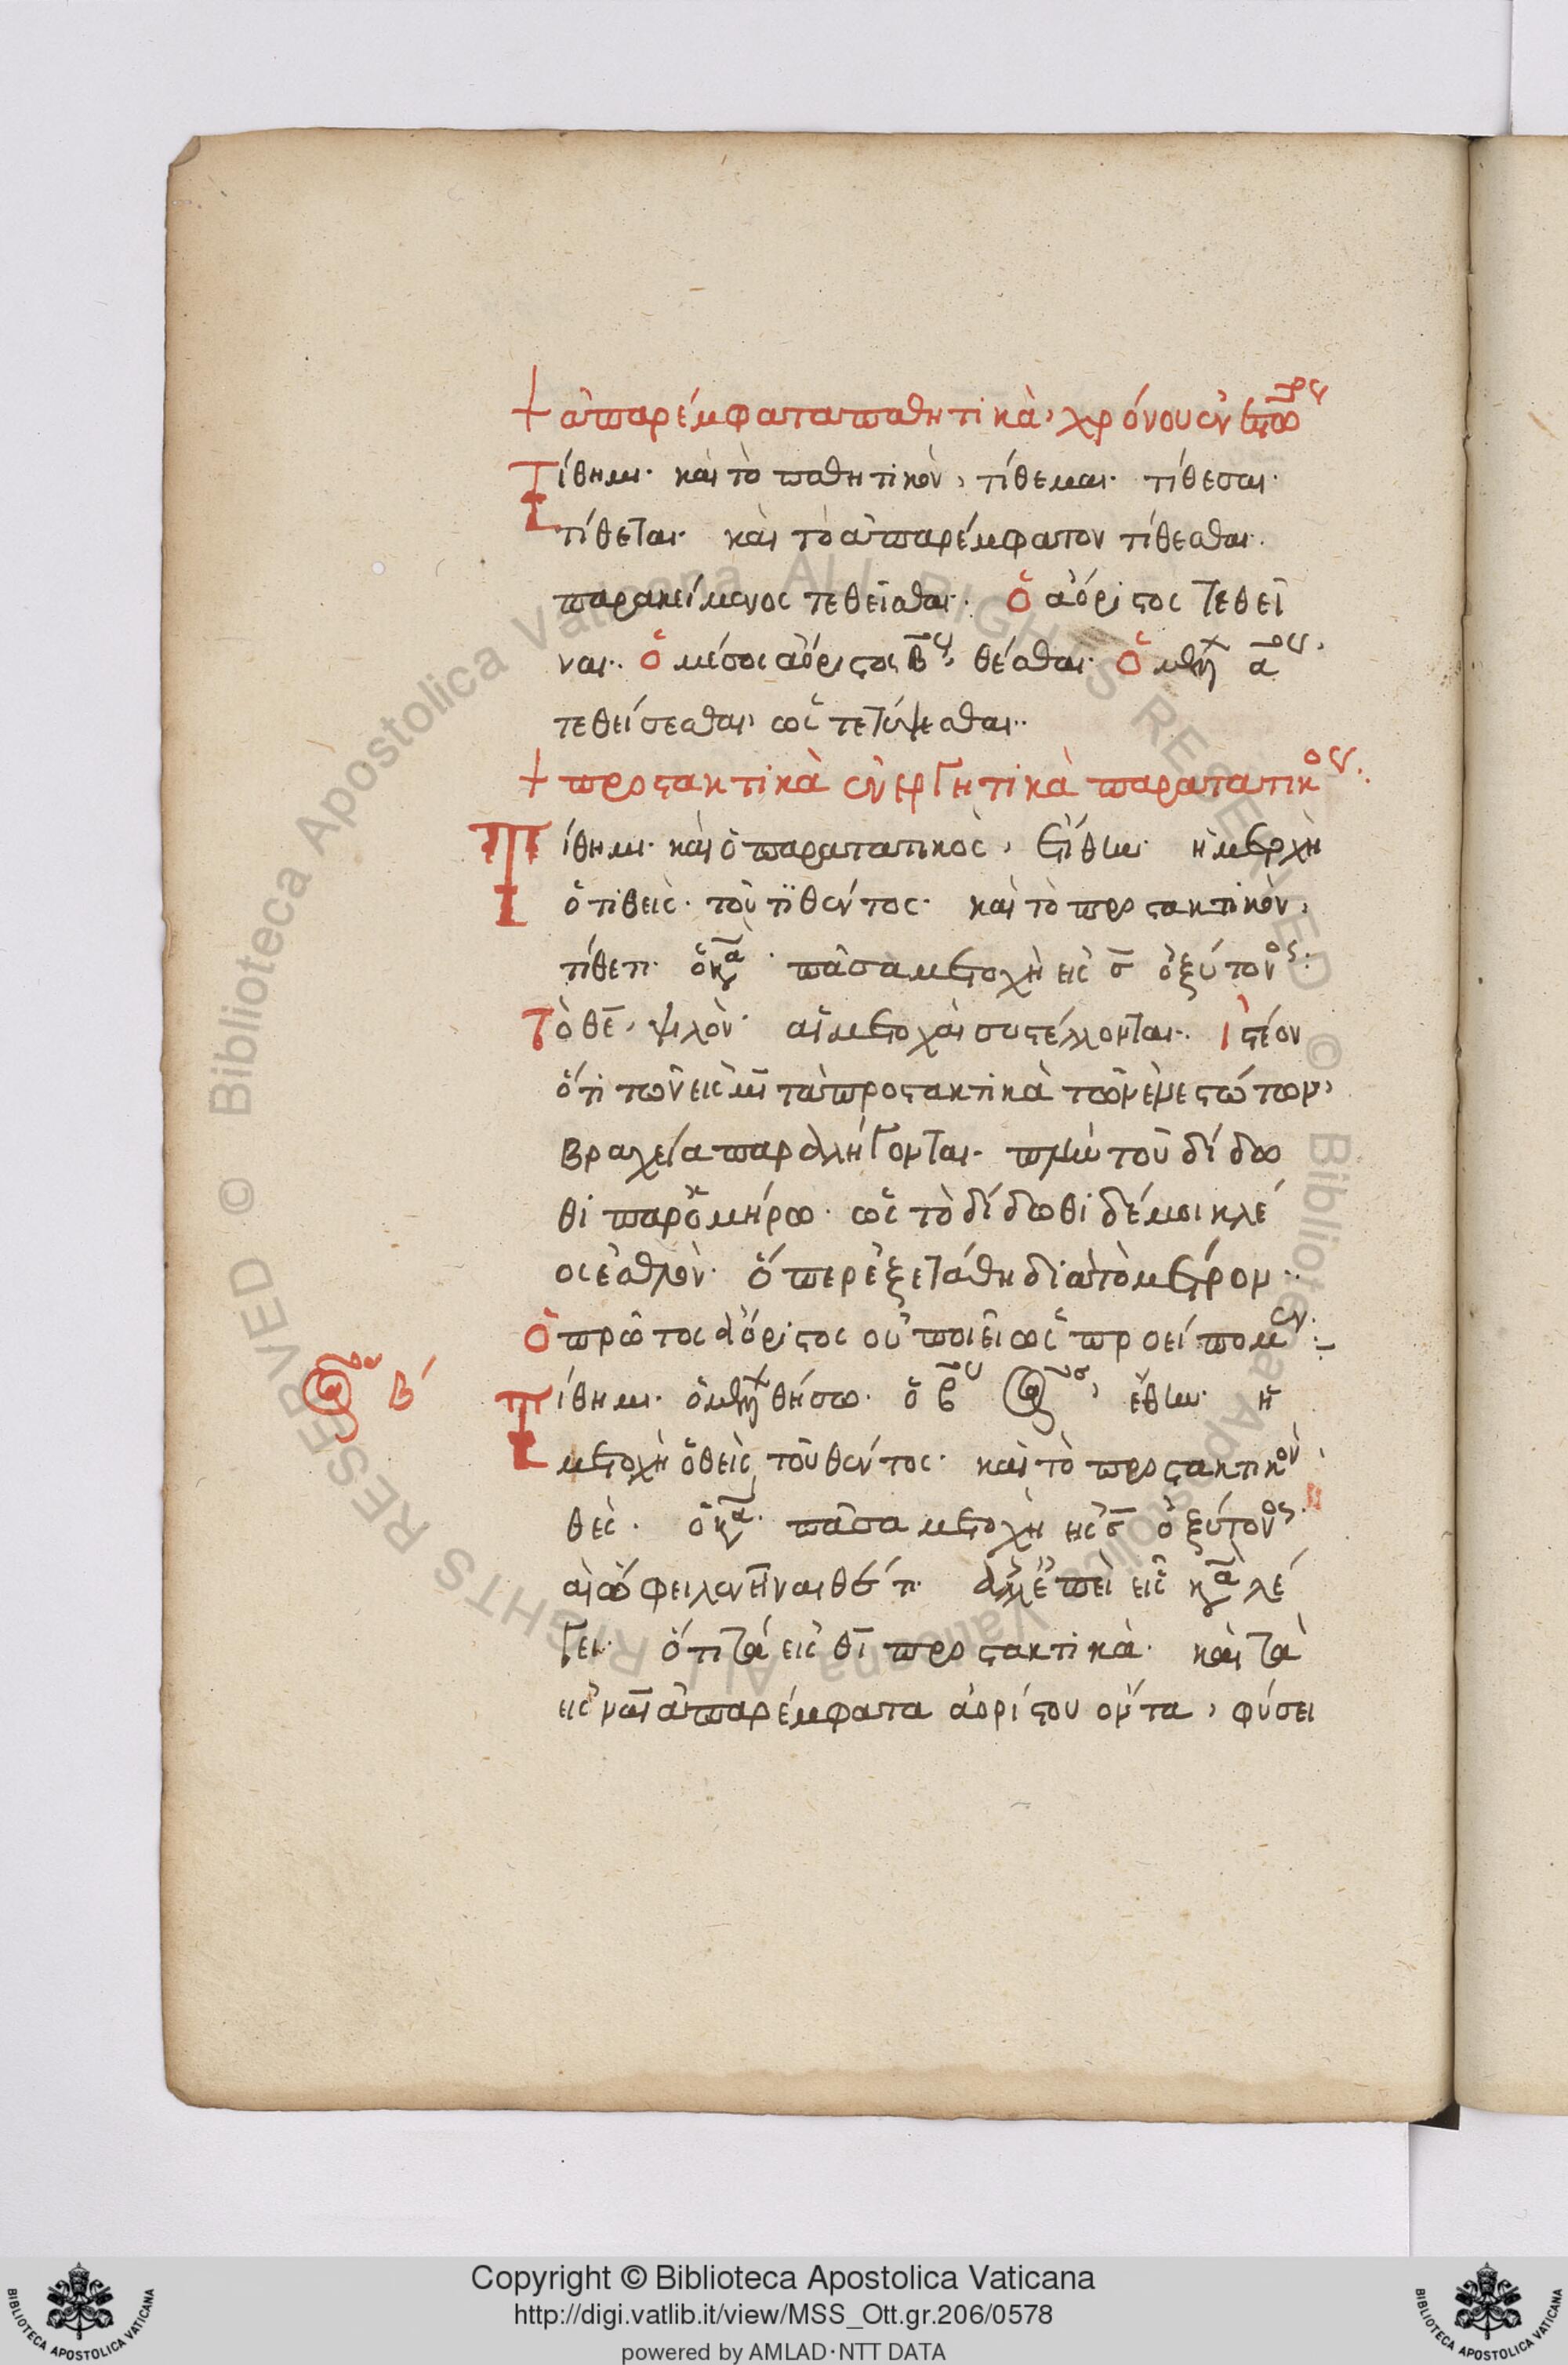 + ἀπαρέμφατα παθητικὰ, χρόνου ἐνεστῶτος
Τίθημι· καὶ τὸ παθητικὸν, τίθεμαι· τίθεσαι·
τίθεται· καὶ τὸ ἀπαρέμφατον τίθεσθαι.
παρακείμενος τεθεῖσθαι· Ὁ ἀόριστος τεθεῖ
ναι· Ὁ μέσος ἀόριστος β̅ος, θέσθαι· Ὁ α̅ος,
τεθείσεσθαι, ὡς τετύψεσθαι··
+ προστακτικὰ ἐνεργητικὰ παρατατικοῦ.
Τίθημι· καὶ ὁ παρατατικὸς, ἐτίθην· ἡ μετοχὴ
ὁ τιθεὶς· τοῦ τιθέντος· καὶ τὸ προστακτικὸν,
τίθετι· ὁ κα̅· πᾶσα μετοχὴ εἰς σ̅ ὀξύτονος·
Τὸ θε̅, ψιλὸν· αἱ μετοχαὶ συστέλλονται· Ἰστέον
ὅτι τῶν εἰς μι̅ τὰ προστακτικὰ τῶν ἐνεστώτων,
βραχεία παραλήγονται· πλὴν τοῦ δίδω
θι παρ' ὁμήρω· ὡς τὸ δίδωθι δέ μοι κλέ
ος ἐσθλὸν· ὅπερ ἐξετάθη διὰ τὸ μέτρον··
Ὁ πρῶτος ἀόριστος οὐ ποιεῖ ὡς προείπομεν:
β΄
Τίθημι· ὁ θήσω· ὁ β̅ος, ἔθην· ἡ
μετοχὴ ὁ θεὶς τοῦ θέντος· καὶ τὸ προστακτικὸν,
θές· ὁ κα̅· πᾶσα μετοχὴ εἰς σ̅ ὀξύτονος·
ὤφειλεν εἶναι θέτι· ἀλλ' ἐπεὶ εἷς κα̅ λέ
γει· ὅτι τὰ εἰς θι̅ προστακτικὰ· καὶ τὰ
εἰς ναι̅ ἀπαρέμφατα ἀορίστου ὄντα, φύσει
Copyright © Biblioteca Apostolica Vaticana
http://digi.vatlib.it/view/MSS_Ott.gr.206/0578
powered by AMLAD·NTT DATA